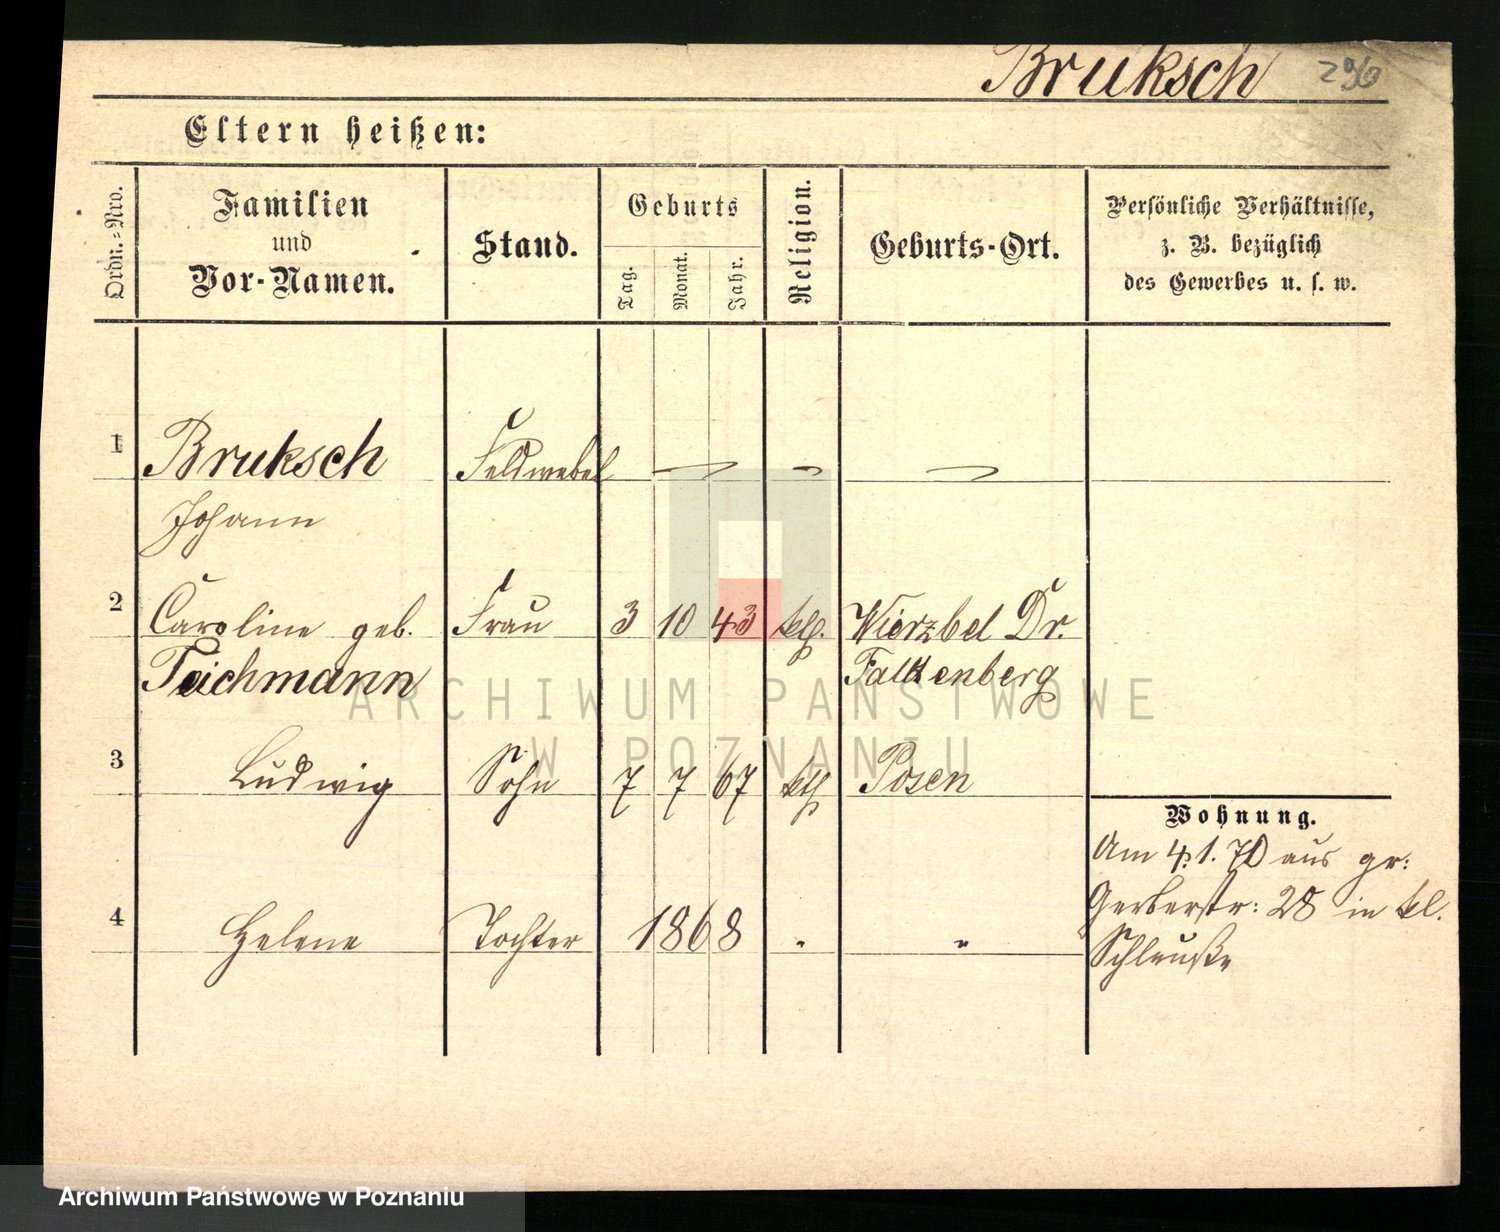 Bruksch 290
Eltern heißen:
Ordn.-Nro.
Familien
und
Vor-Namen.
Stand.
Geburts
Tag.
Monat.
Jahr.
Religion.
Geburts-Ort.
Persönliche Verhältnisse,
z. B. bezüglich
des Gewerbes u. s. w.
1 Bruksch Feldwebel
Johann
2 Caroline geb. Frau 3 10 43 kth. Wierzbel Dr.
Teichmann Falkenberg
3 Ludwig Sohn 7 7 67 kth Posen
4 Helene Tochter 1868 " "
Wohnung.
Am 4.1.70 aus gr:
Gerberstr: 28 in kl.
Schleuße
ARCHIWUM PAŃSTWOWE
W POZNANIU
Archiwum Państwowe w Poznaniu